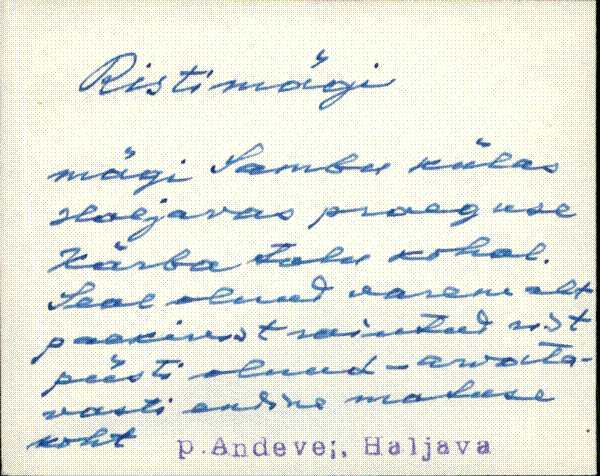 Ristimägi
mägi Sambu külas
Haljavas praeguse
Kärba talu kohal.
Seal olnud varem alt
paekivist raiutud rist
püsti olnud - arvata-
vasti endine matuse
koht
p.Andevei, Haljava